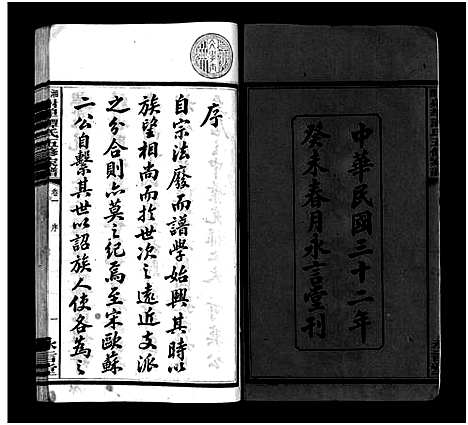 中華民國三十二年
癸未春月永言堂刊
序
自宗法廢而譜學始興其時以
族望相尚而於世次之遠近支派
之分合則亦莫之紀焉至宋歐蘇
二公自繫其世以詔族人使各為之
卷一
序
一
永言堂